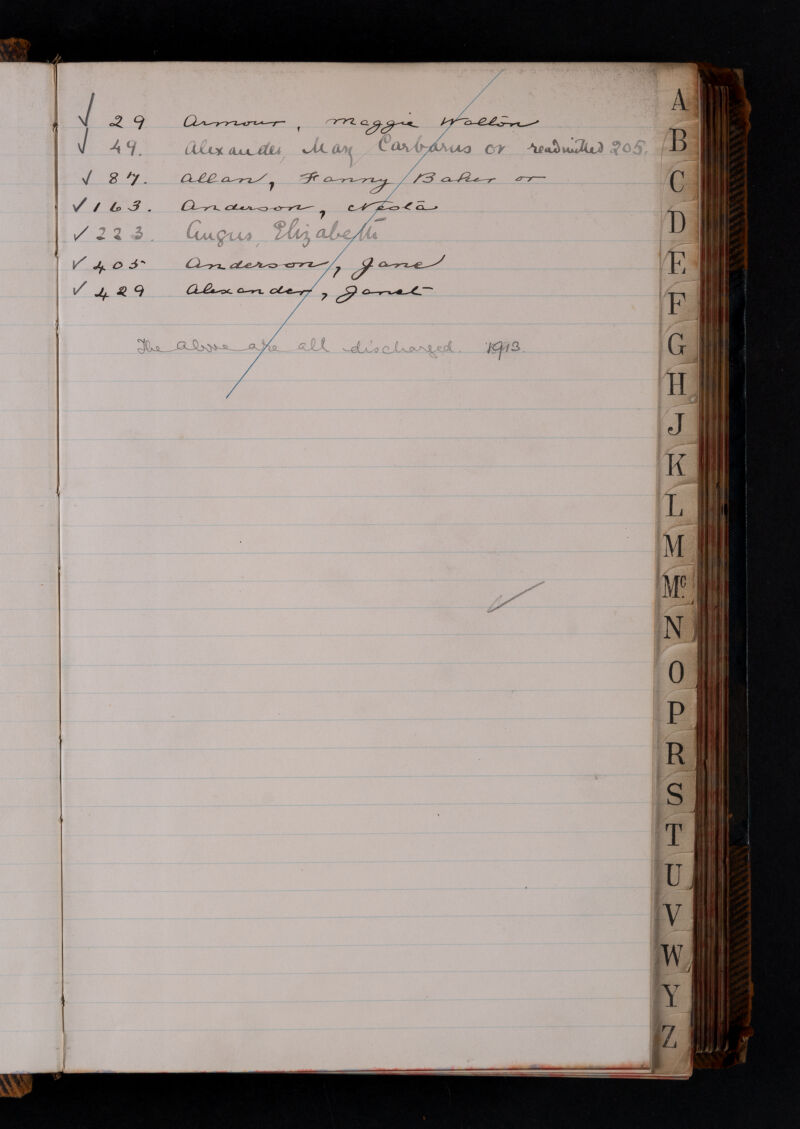 √ 29 Armour, Maggie Walton
√ 49. Alexander, May Carbarns or readmitted 205.
√ 87. Allan, Fanny Baker or
√ 163. Anderson, Nesta
√ 223. Angus, Elizabeth
√ 405 Anderson, Jane
√ 429 Alexander, Janet
The above are all discharged. 1913.
A
B
C
D
E
F
G
H
J
K
L
M
Mc.
N
O
P
R
S
T
U
V
W
Y
Z